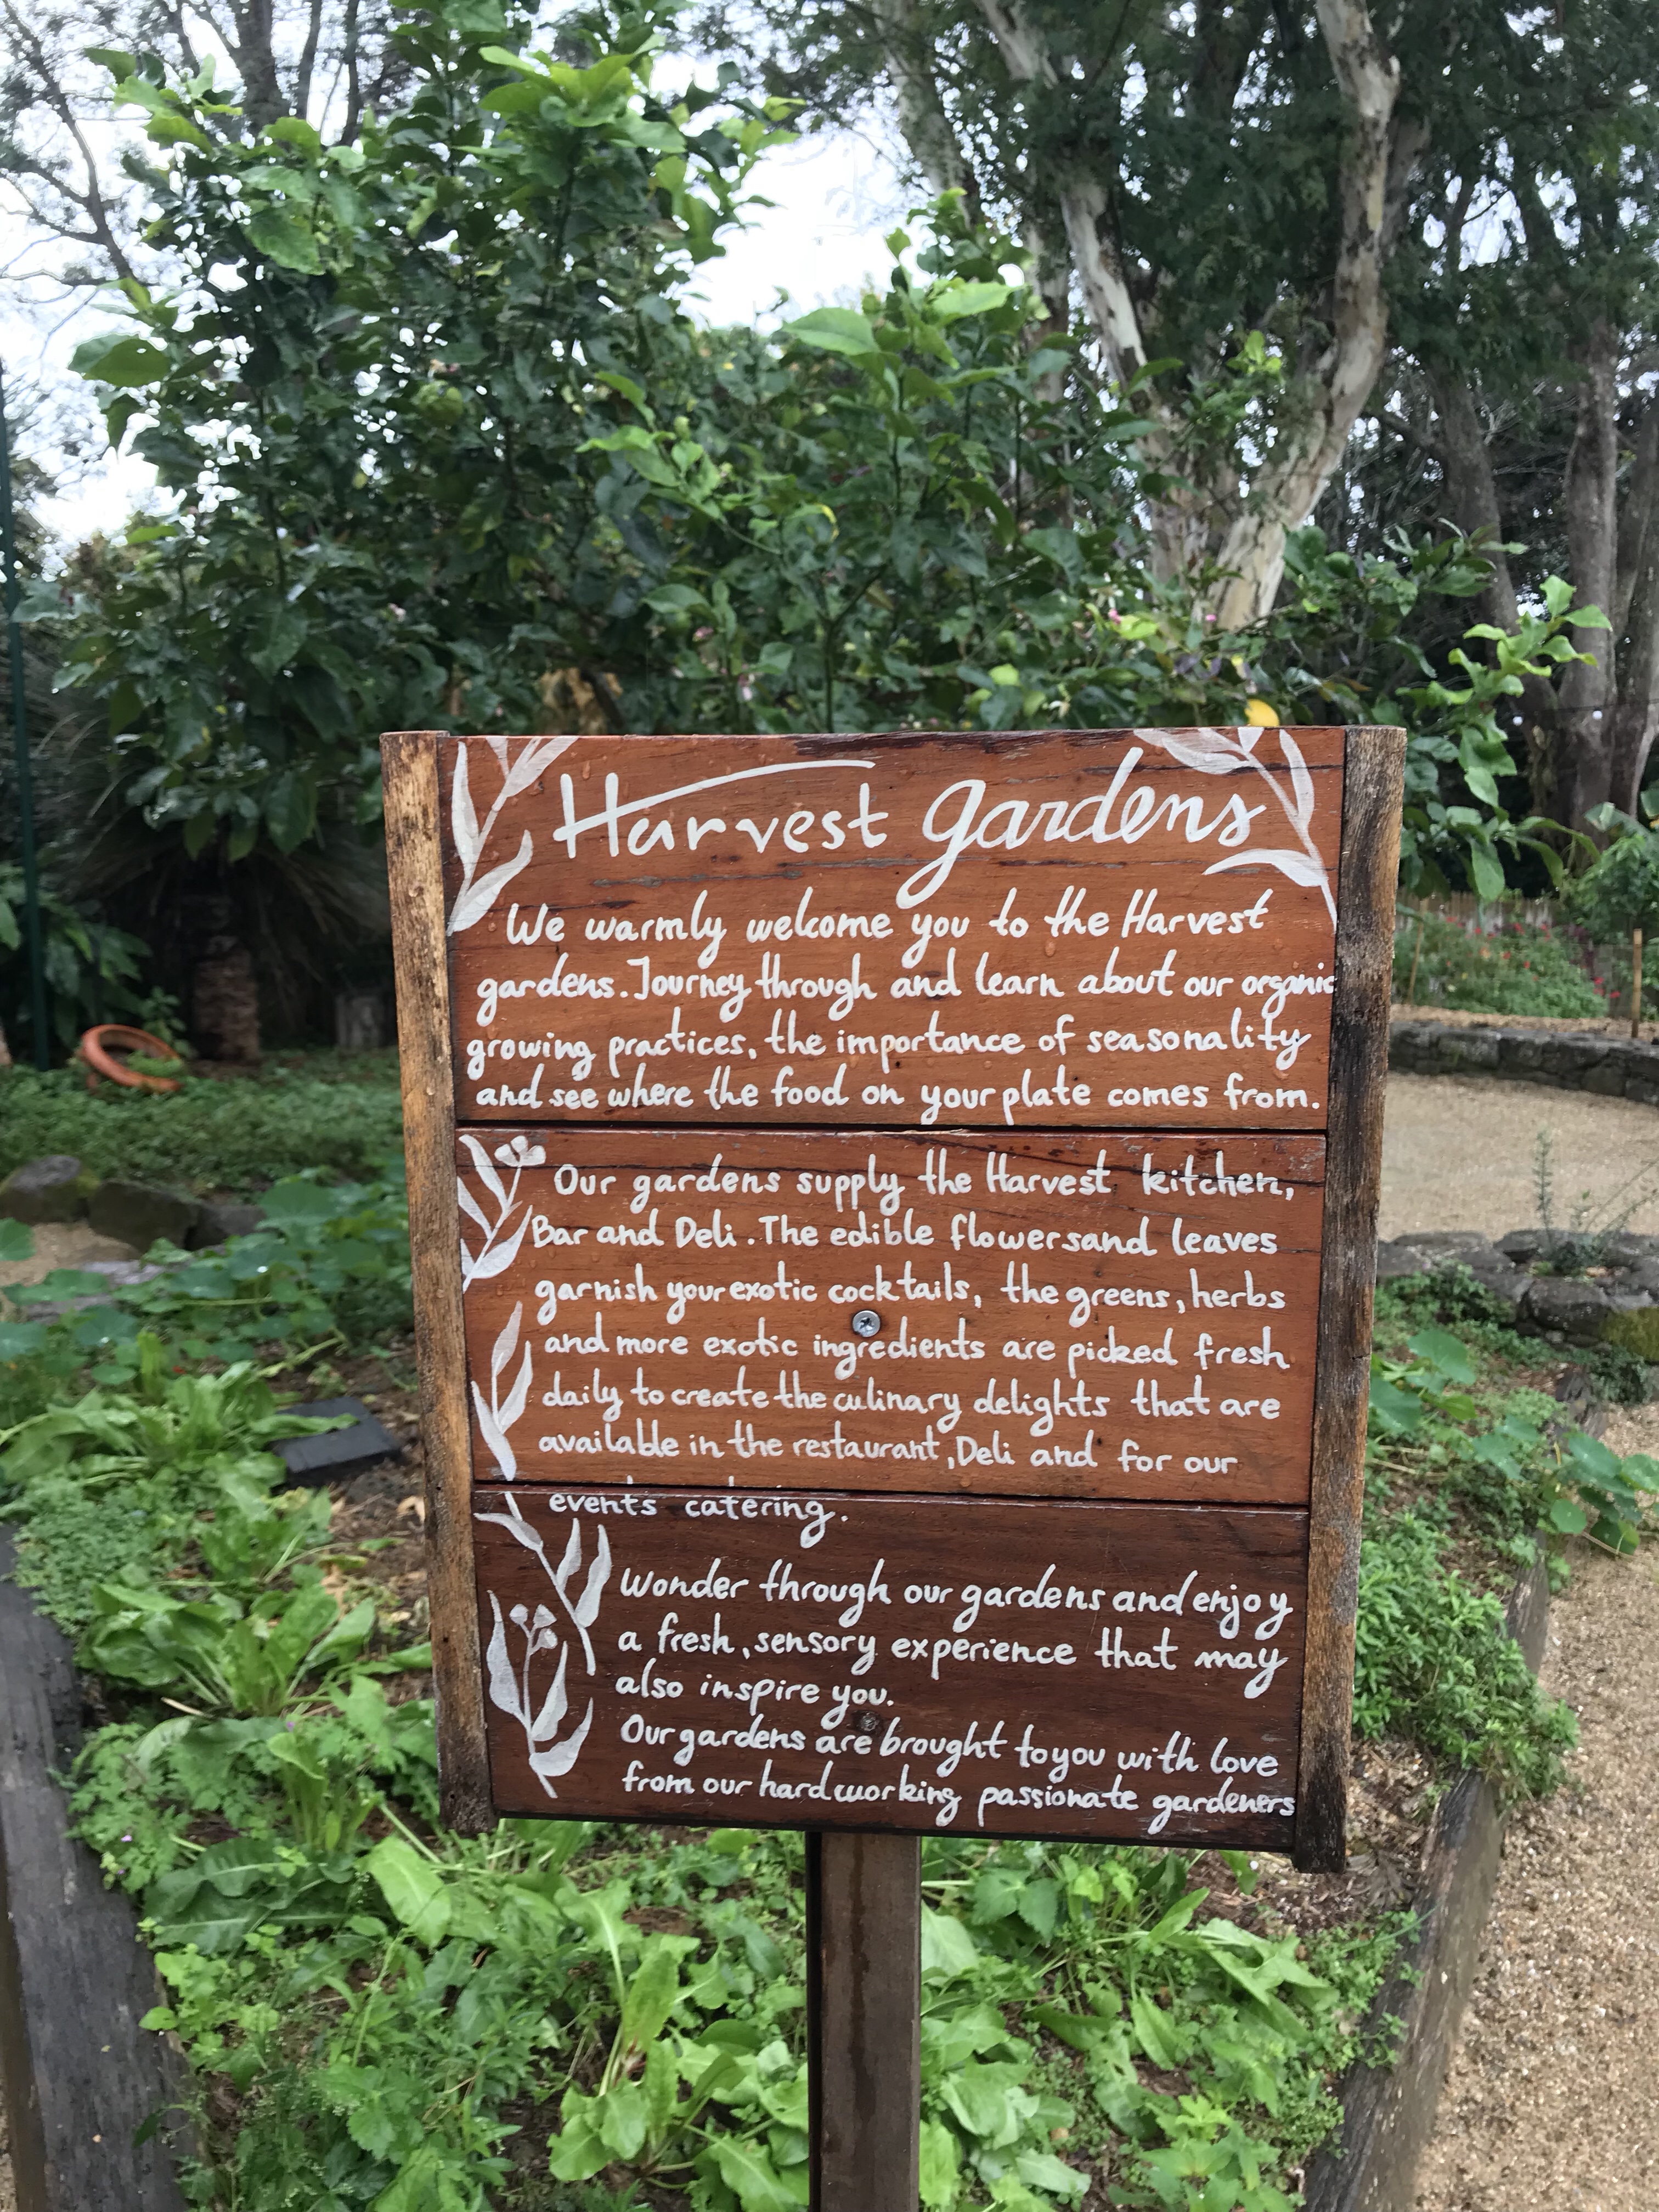 Harvest gardens
We warmly welcome you to the Harvest
gardens. Journey through and learn about our organic
growing practices, the importance of seasonality
and see where the food on your plate comes from.
Our gardens supply the Harvest kitchen,
Bar and Deli. The edible flowers and leaves
garnish your exotic cocktails, the greens, herbs
and more exotic ingredients are picked fresh
daily to create the culinary delights that are
available in the restaurant, Deli and for our
events catering.
Wonder through our gardens and enjoy
a fresh, sensory experience that may
also inspire you.
Our gardens are brought to you with love
from our hardworking passionate gardeners